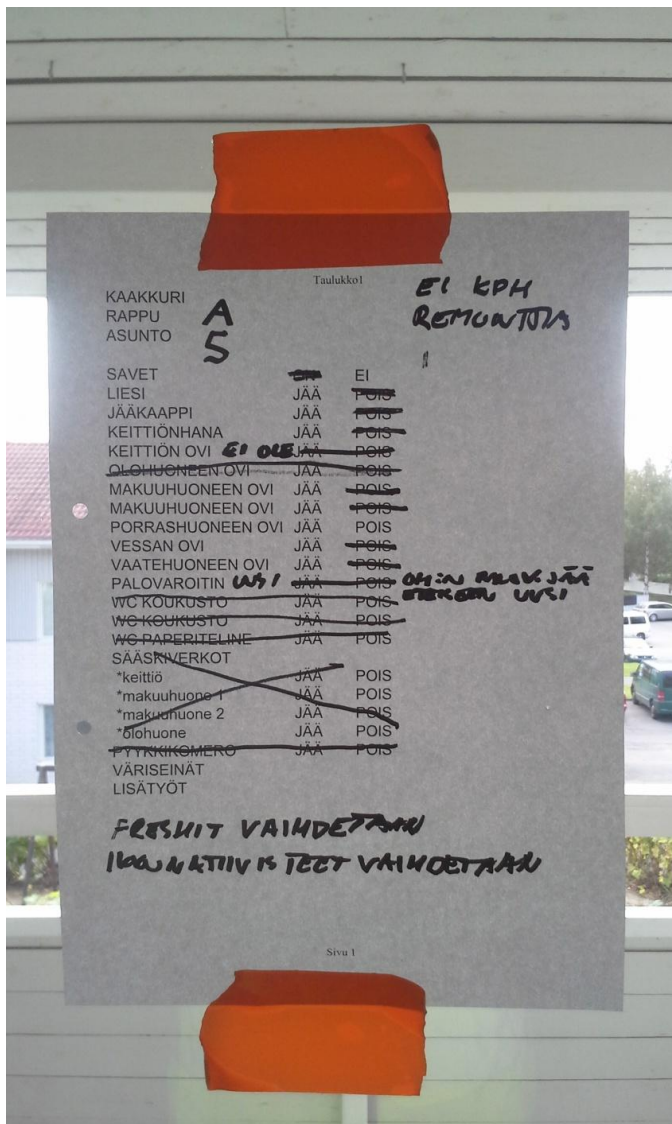 Taulukko1
KAAKKURI
RAPPU A
ASUNTO 5
EI KPH
REMONTTIA
SAVET ON EI
LIESI JÄÄ POIS
JÄÄKAAPPI JÄÄ POIS
KEITTIÖNHANA JÄÄ POIS
KEITTIÖN OVI EI OLE JÄÄ POIS
OLOHUONEEN OVI JÄÄ POIS
MAKUUHUONEEN OVI JÄÄ POIS
MAKUUHUONEEN OVI JÄÄ POIS
PORRASHUONEEN OVI JÄÄ POIS
VESSAN OVI JÄÄ POIS
VAATEHUONEEN OVI JÄÄ POIS
PALOVAROITIN UUSI JÄÄ POIS JÄÄ
WC KOUKUSTO JÄÄ POIS UUSI
WC KOUKUSTO JÄÄ POIS
WC PAPERITELINE JÄÄ POIS
SÄÄSKIVERKOT
*keittiö JÄÄ POIS
*makuuhuone 1 JÄÄ POIS
*makuuhuone 2 JÄÄ POIS
*olohuone JÄÄ POIS
PYYKKIKOMERO JÄÄ POIS
VÄRISEINÄT
LISÄTYÖT
FRESHIT VAIHDETAAN
IKKUNATIIVISTEET VAIHDETAAN
Sivu 1